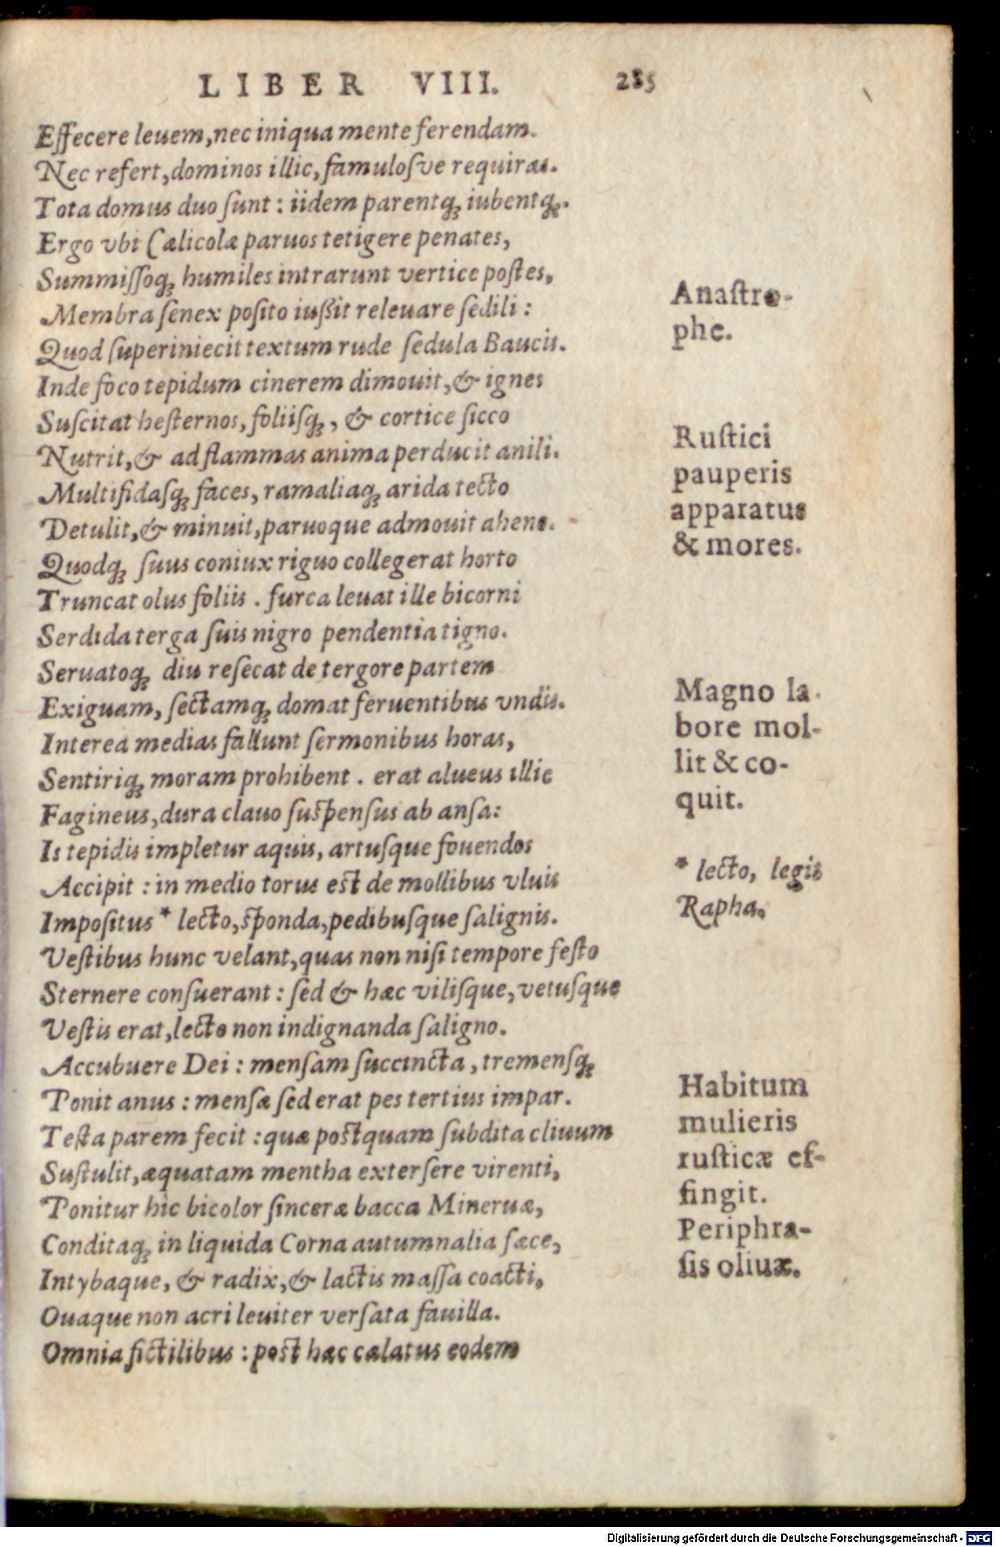 LIBER VIII. 285
Effecere leuem, nec iniqua mente ferendam.
Nec refert, dominos illic, famulosve requiras.
Tota domus duo sunt: iidem parentq́; iubentq́;.
Ergo vbi Cælicolæ paruos tetigere penates,
Summissoq́; humiles intrarunt vertice postes,
Membra senex posito iussit releuare sedili:
Quod superiniecit textum rude sedula Baucis.
Inde foco tepidum cinerem dimouit, & ignes
Suscitat hesternos, foliisq́;, & cortice sicco
Nutrit, & ad flammas anima perducit anili.
Multifidasq́; faces, ramaliaq́; arida tecto
Detulit, & minuit, paruoque admouit aheno.
Quodq́; suus coniux riguo collegerat horto
Truncat olus foliis. furca leuat ille bicorni
Serdida terga suis nigro pendentia tigno.
Seruatoq́; diu resecat de tergore partem
Exiguam, sectamq́; domat feruentibus vndis.
Interea medias fallunt sermonibus horas,
Sentiriq́; moram prohibent. erat alueus illic
Fagineus, dura clauo suspensus ab ansa:
Is tepidis impletur aquis, artusque fouendos
Accipit: in medio torus est de mollibus vluis
Impositus * lecto, sponda, pedibusque salignis.
Vestibus hunc velant, quas non nisi tempore festo
Sternere consuerant: sed & hæc vilisque, vetusque
Vestis erat, lecto non indignanda saligno.
Accubuere Dei: mensam succincta, tremensq́;
Ponit anus: mensæ sed erat pes tertius impar.
Testa parem fecit: quæ postquam subdita cliuum
Sustulit, æquatam mentha extersere virenti,
Ponitur hic bicolor sinceræ bacca Mineruæ,
Conditaq́; in liquida Corna autumnalia fæce,
Intybaque, & radix, & lactis massa coacti,
Ouaque non acri leuiter versata fauilla.
Omnia fictilibus: post hæc calatus eodem
Anastro-
phe.
Rustici
pauperis
apparatus
& mores.
Magno la-
bore mol-
lit & co-
quit.
* lecto, legit
Rapha.
Habitum
mulieris
rusticæ ef-
fingit.
Periphra-
sis oliuæ.
Digitalisierung gefördert durch die Deutsche Forschungsgemeinschaft - DFG